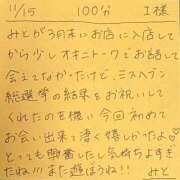 11/15 100分 I様
みとが3月末にお店に入店して
から少しオキニトークでお話して
会えてなかったけど、ミスヘブン
総選挙の結果をお祝いして
くれたのを機に今回初めて
お会い出来て凄く嬉しかったよ♡
とっても興奮したし気持ちよすぎ
たね!!!また遊ぼうね!!
みと